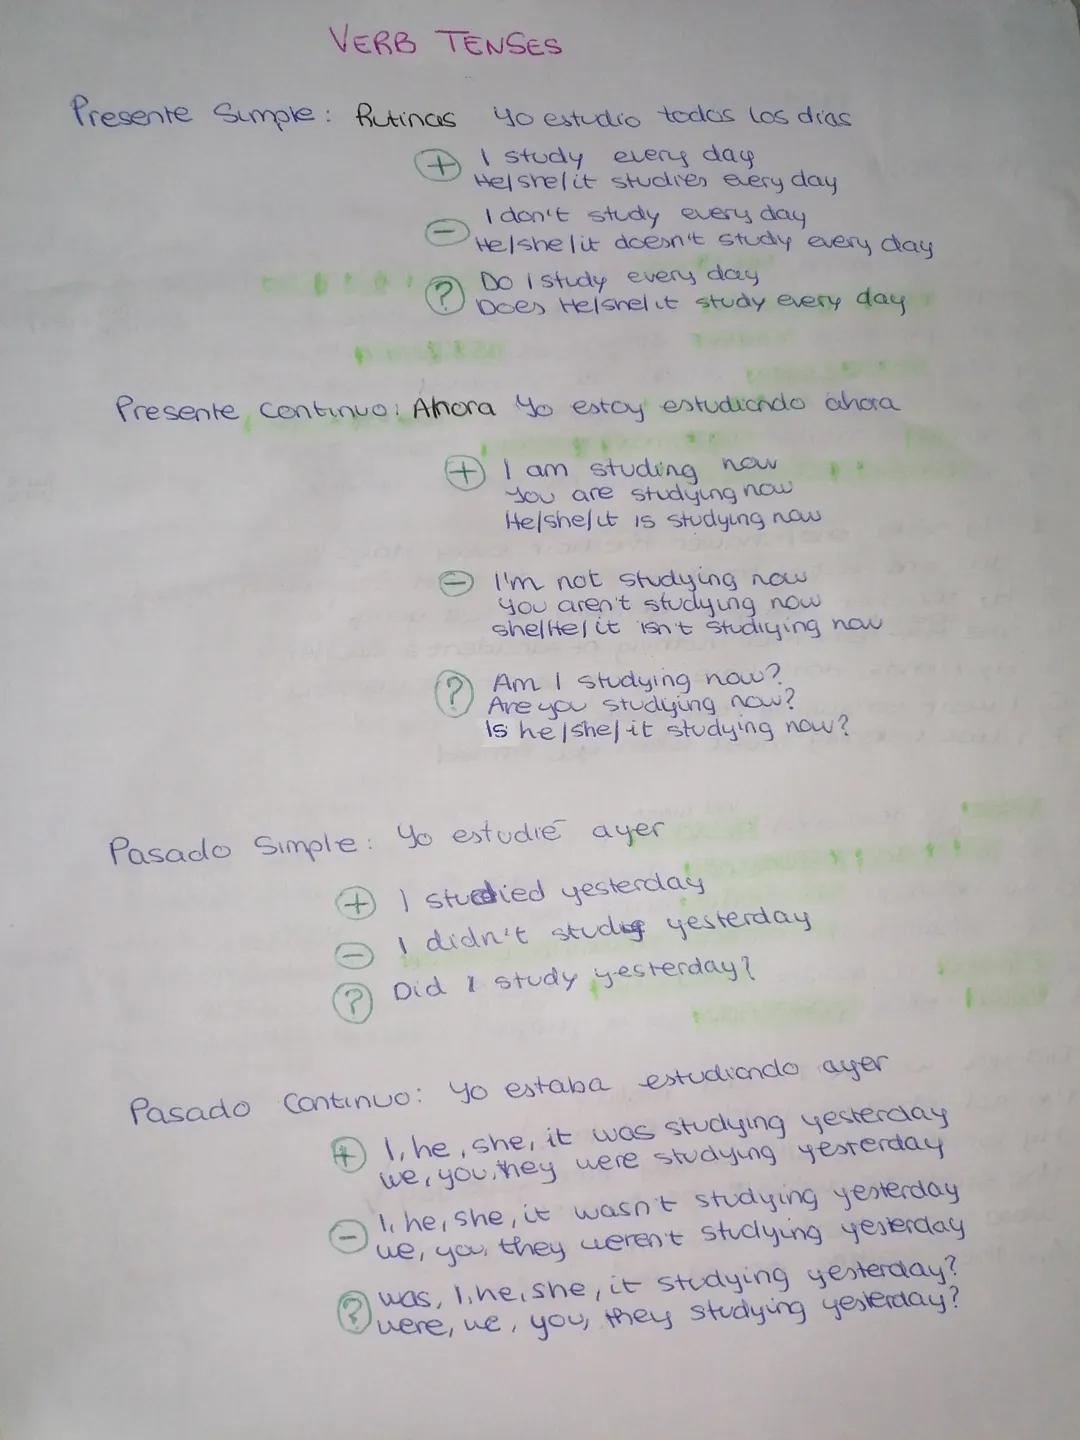 VERB TENSES
Presente Simple: Rutinas Yo estudio todos los días
+ I study every day
He/she/it studies every day
- I don't study every day
He/she/it doesn't study every day
? Do I study every day
Does He/she/it study every day
Presente Continuo: Ahora Yo estoy estudiando ahora
+ I am studing now
You are studying now
He/she/it is studying now
- I'm not studying now
You aren't studying now
she/He/it isn't studiying now
? Am I studying now?
Are you studying now?
Is he/she/it studying now?
Pasado Simple: Yo estudié ayer
+ I studied yesterday
- I didn't study yesterday
? Did I study yesterday?
Pasado Continuo: Yo estaba estudiando ayer
+ I, he, she, it was studying yesterday
we, you, they were studying yesterday
- I, he, she, it wasn't studying yesterday
we, you, they weren't studying yesterday
? was, I, he, she, it studying yesterday?
were, we, you, they studying yesterday?